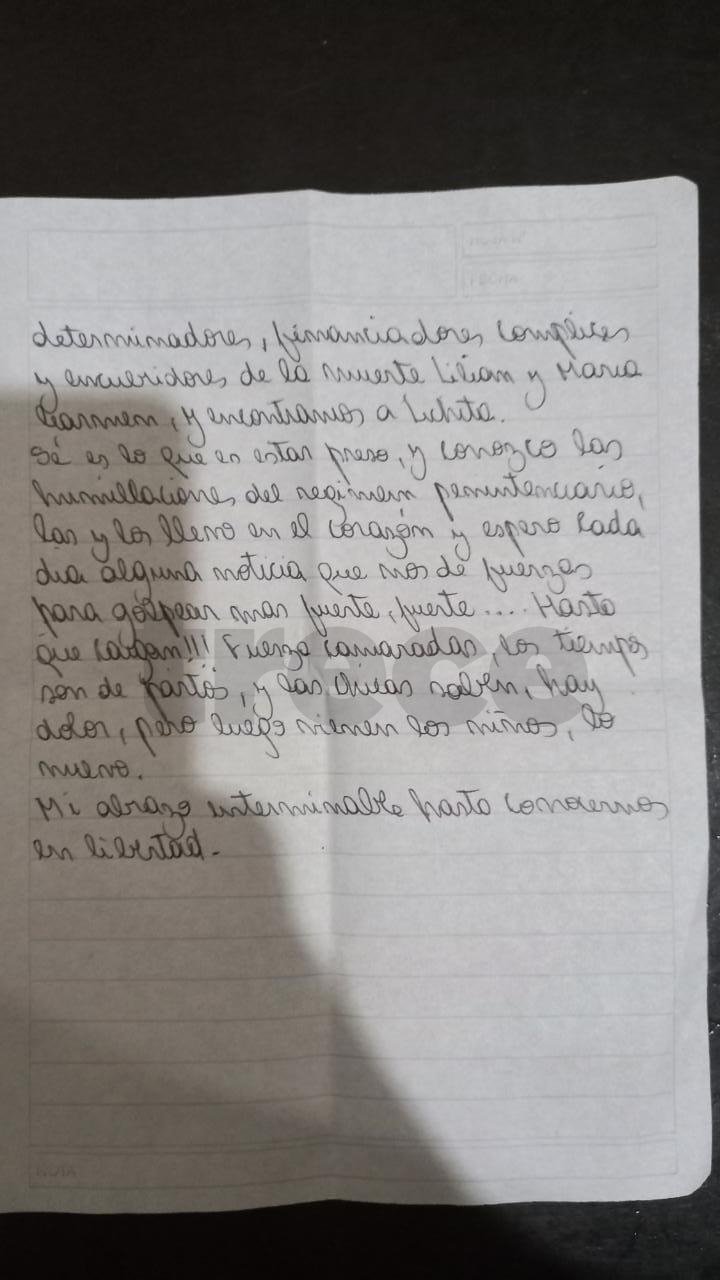 determinadores, financiadores complices
y encueridores de la muerte Lilian y Maria
Carmen, y encontramos a Lichita.
Sé es lo que es estar preso, y conozco las
humillaciones del regimen penintenciario,
las y los llevo en el corazón y espero cada
dia alguna noticia que nos de fuerzas
para golpear mas fuerte, fuerte.... Hasta
que caigan!!! Fuerza camaradas, los tiempos
son de partos, y las chicas saben, hay
dolor, pero luego vienen los niños, lo
nuevo.
Mi abrazo interminable hasta conocernos
en libertad.-
trece
FECHA
NOTA